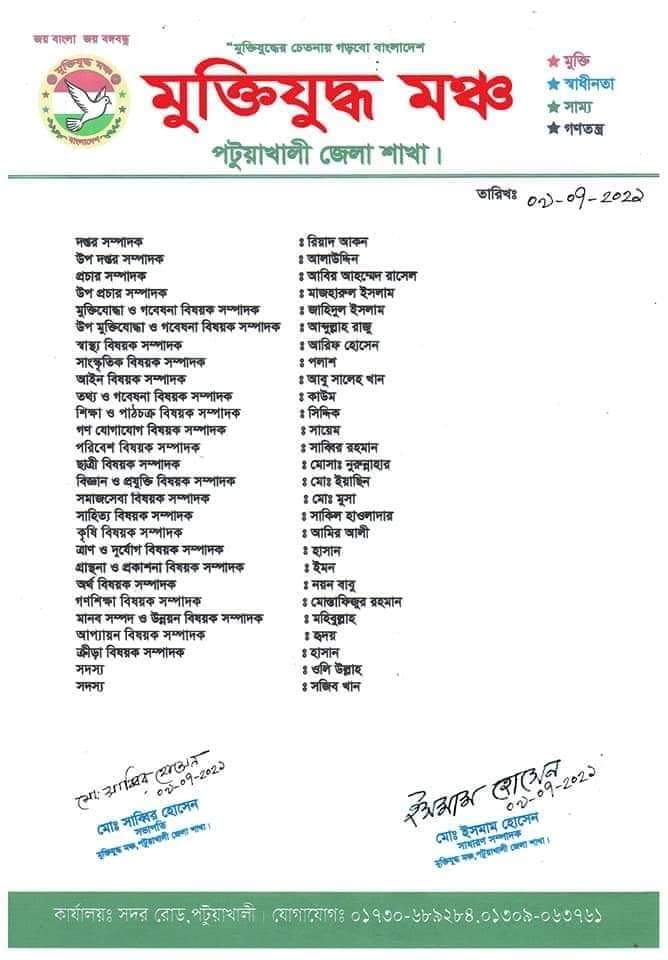 জয় বাংলা জয় বঙ্গবন্ধু
"মুক্তিযুদ্ধের চেতনায় গড়বো বাংলাদেশ
মুক্তিযুদ্ধ মঞ্চ
বাংলাদেশ
মুক্তিযুদ্ধ মঞ্চ
মুক্তি
স্বাধীনতা
সাম্য
গণতন্ত্র
পটুয়াখালী জেলা শাখা।
তারিখঃ ০৯-০৭-২০২১
দপ্তর সম্পাদক : রিয়াদ আকন
উপ দপ্তর সম্পাদক : আলাউদ্দিন
প্রচার সম্পাদক : আবির আহম্মেদ রাসেল
উপ প্রচার সম্পাদক : মাজহারুল ইসলাম
মুক্তিযোদ্ধা ও গবেষনা বিষয়ক সম্পাদক : জাহিদুল ইসলাম
উপ মুক্তিযোদ্ধা ও গবেষনা বিষয়ক সম্পাদক : আব্দুল্লাহ রাজু
স্বাস্থ্য বিষয়ক সম্পাদক : আরিফ হোসেন
সাংস্কৃতিক বিষয়ক সম্পাদক : পলাশ
আইন বিষয়ক সম্পাদক : আবু সালেহ খান
তথ্য ও গবেষনা বিষয়ক সম্পাদক : কাউম
শিক্ষা ও পাঠচক্র বিষয়ক সম্পাদক : সিদ্দিক
গণ যোগাযোগ বিষয়ক সম্পাদক : সায়েম
পরিবেশ বিষয়ক সম্পাদক : সাব্বির রহমান
ছাত্রী বিষয়ক সম্পাদক : মোসাঃ নুরুন্নাহার
বিজ্ঞান ও প্রযুক্তি বিষয়ক সম্পাদক : মোঃ ইয়াছিন
সমাজসেবা বিষয়ক সম্পাদক : মোঃ মুসা
সাহিত্য বিষয়ক সম্পাদক : সাকিল হাওলাদার
কৃষি বিষয়ক সম্পাদক : আমির আলী
ত্রাণ ও দুর্যোগ বিষয়ক সম্পাদক : হাসান
গ্রান্থনা ও প্রকাশনা বিষয়ক সম্পাদক : ইমন
অর্থ বিষয়ক সম্পাদক : নয়ন বাবু
গণশিক্ষা বিষয়ক সম্পাদক : মোস্তাফিজুর রহমান
মানব সম্পদ ও উন্নয়ন বিষয়ক সম্পাদক : মহিবুল্লাহ
আপ্যায়ন বিষয়ক সম্পাদক : হৃদয়
ক্রীড়া বিষয়ক সম্পাদক : হাসান
সদস্য : ওলি উল্লাহ
সদস্য : সজিব খান
মোঃ সাব্বির হোসেন
০৯-০৭-২০২১
মোঃ সাব্বির হোসেন
সভাপতি
মুক্তিযুদ্ধ মঞ্চ,পটুয়াখালী জেলা শাখা।
ইসমাম হোসেন
০৯-০৭-২০২১
মোঃ ইসমাম হোসেন
সাধারণ সম্পাদক
মুক্তিযুদ্ধ মঞ্চ,পটুয়াখালী জেলা শাখা।
কার্যালয়ঃ সদর রোড,পটুয়াখালী। যোগাযোগঃ ০১৭৩০-৬৮৯২৮৪,০১৩০৯-০৬৩৭৬১